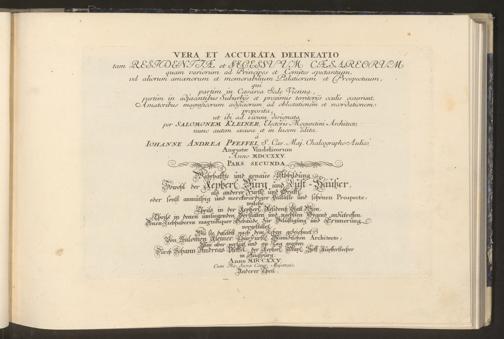 VERA ET ACCURATA DELINEATIO
tam RESIDENTIÆ et SECESSUUM CÆSAREORUM
quam variorum ad Principes et Comites spectantium,
vel aliorum amœnorum et memorabilium Palatiorum et Prospectuum,
qui
partim in Cæsarea Sede Vienna,
partim in adjacentibus Suburbiis et proximis territoriis oculis occurrunt.
Amatoribus magnificorum ædificiorum ad oblectationem et
proposita,
ut ibi ad vivum designata
per SALOMONEM KLEINER, Electoris Moguntini Architect:
nunc autem æri incisa et in lucem edita
à
IOHANNE ANDREA PFEFFEL, S. Cæs. Maj. Chalcographo Aulico
Augustæ Vindelicorum
Anno MDCCXXV.
PARS SECUNDA.
Wahrhaffte und genaue Abbildung
Sowohl der Keyserl. Burg und Lust-Häuser,
als anderer Fürstl. und Gräffl.
oder sonst anmuthig und merckwürdiger Palläste und schönen Prospecte,
welche
Theils in der Keyserl. Residentz Statt Wien,
Theils in denen umligenden Vorstätten und nechsten Gegend anzutreffen.
Denen Liebhabern magnifiquer Gebäude, zur Belustigung und Erinnerung
vorgestellet,
Wie sie daselbst nach dem Leben gezeichnet
Von Salomon Kleiner, Churfürstl. Mäintzischen Architecto,
Nun aber verlegt und an Tag gegeben
Durch Johann Andreas Pfeffel, der Keyserl. Majt. Hoff Kupfferstecher
in Augspurg.
Anno MDCCXXV.
Cum
Anderer Theil.